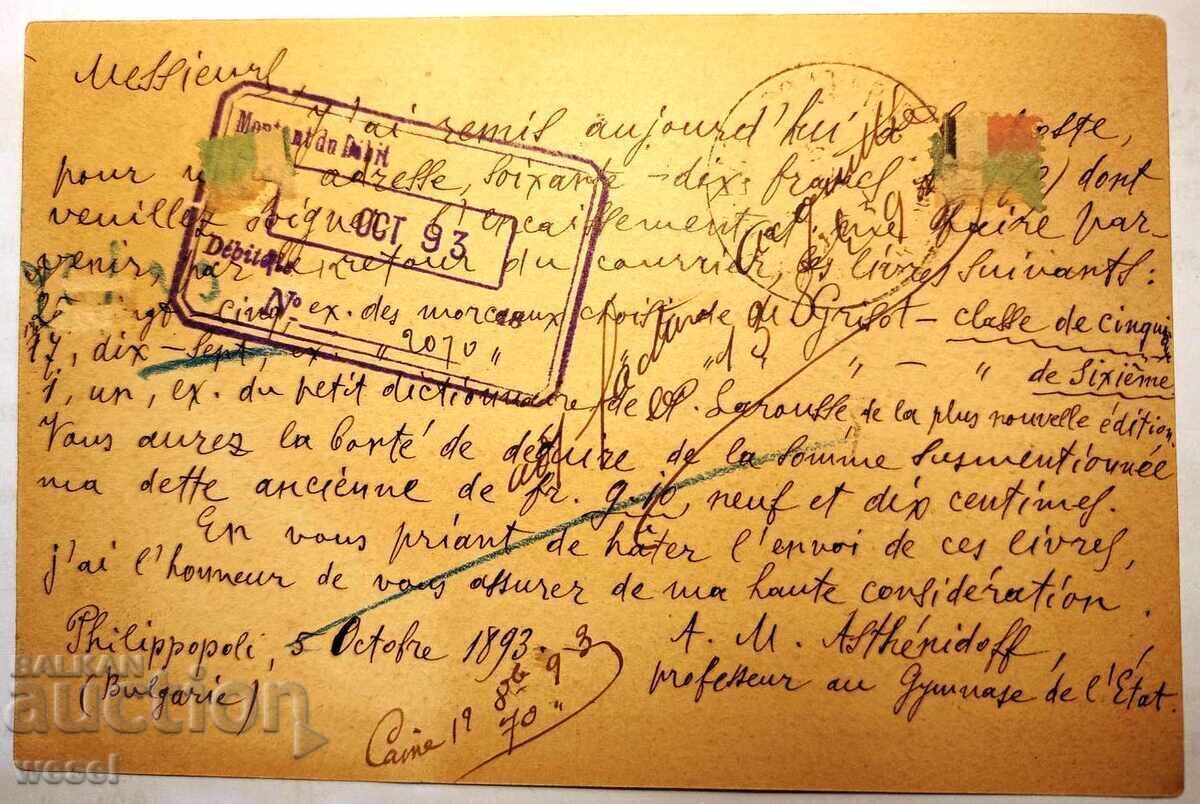 Messieurs,
j'ai remis aujourd'hui à la poste,
pour adresse, soixante-dix francs dont
veuillez soigner l'encaissement et me faire par-
venir, par retour du courrier, les livres suivants:
cinq, ex. des morceaux choisis de Grisot — classe de cinqui
17, dix-sept, ex. „ „ „ — „ de sixième
1, un, ex. du petit dictionnaire de P. Larousse, de la plus nouvelle édition.
Vous aurez la bonté de déduire de la somme susmentionnée
ma dette ancienne de fr. 9.10, neuf et dix centimes.
En vous priant de hâter l'envoi de ces livres,
j'ai l'honneur de vous assurer de ma haute considération.
Philippopoli, 5 Octobre 1893.
(Bulgarie)
A. M. Asthénidoff,
professeur au Gymnase de l'Etat.
Montant du Débit
OCT 93
Débit
No
2070
70 "
BALKAN
auction
wesel